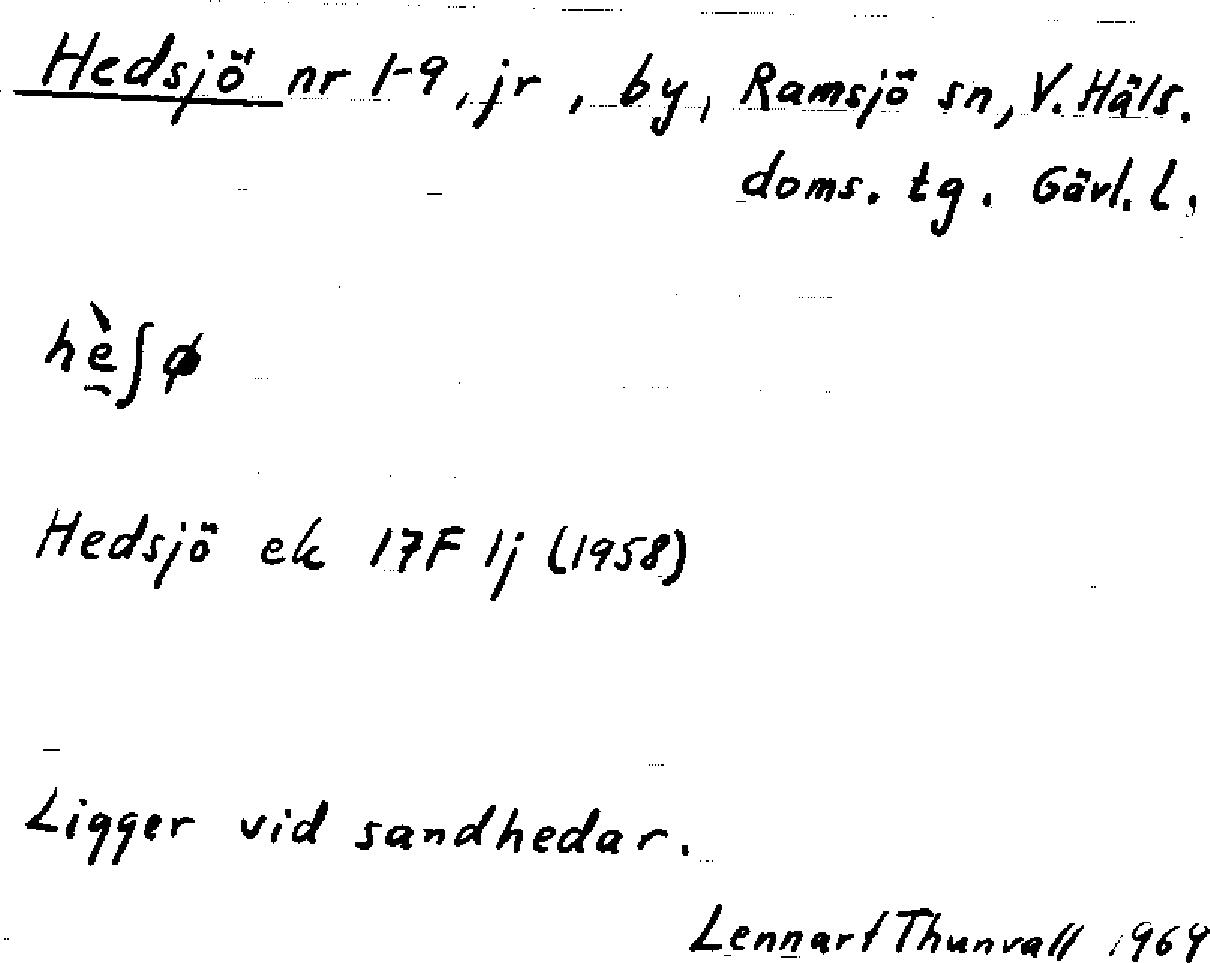 Hedsjö nr 1-9, jr, by, Ramsjö sn, V. Häls.
doms. tg. Gävl. l.
hè̱ʃø
Hedsjö ek 17F 1j (1958)
Ligger vid sandhedar.
Lennart Thunvall 1964